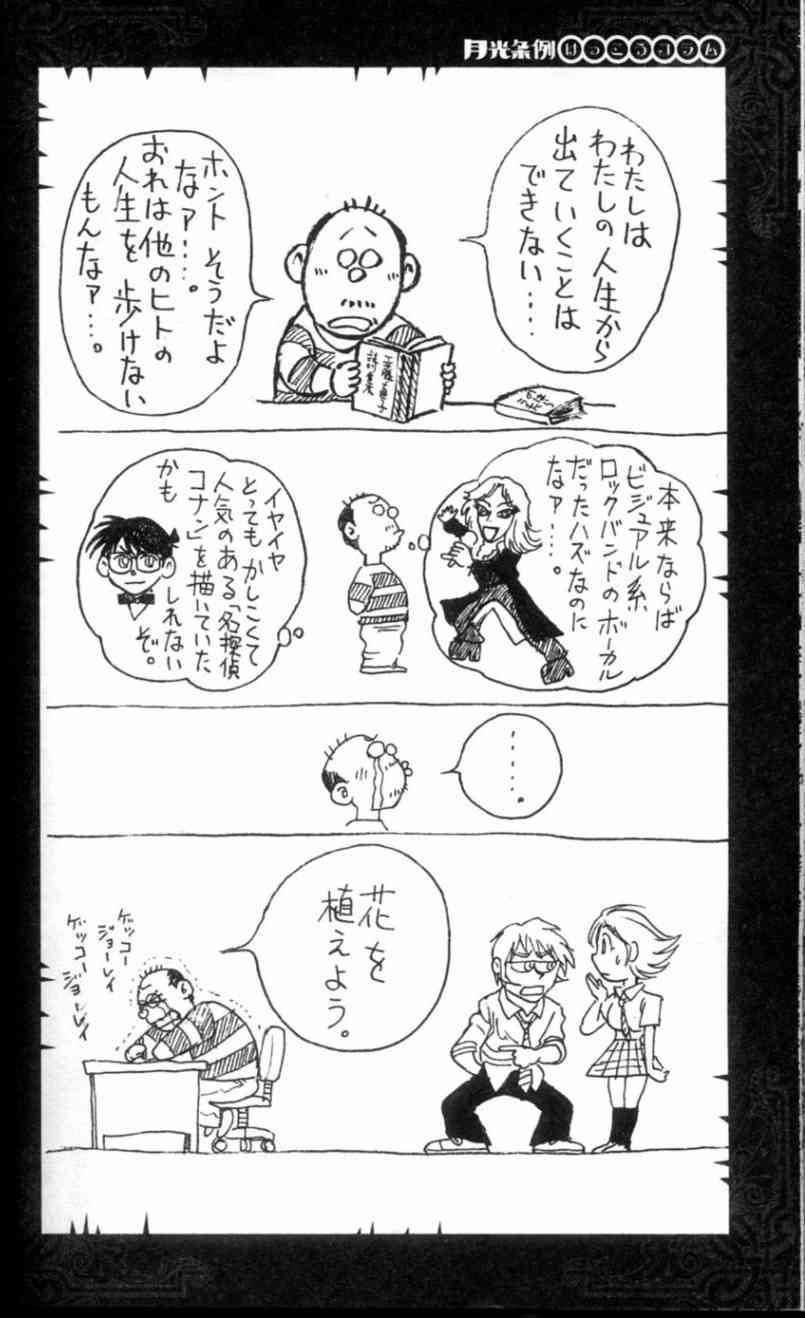 月光条例 げっこうコラム
わたしは
わたしの人生から
出ていくことは
できない....
ホントそうだよ
なァ....。
おれは他のヒトの
人生を歩けない
もんなァ...。
工藤直子
詩集
本来ならば
ビジュアル系
ロックバンドのボーカル
だったハズなのに
なァ....。
イヤイヤ
とってもかしこくて
人気のある「名探偵
コナン」を描いていた
かも
しれない
ぞ。
......。
花を
植えよう。
ゲッコー
ジョーレイ
ゲッコー
ジョーレイ